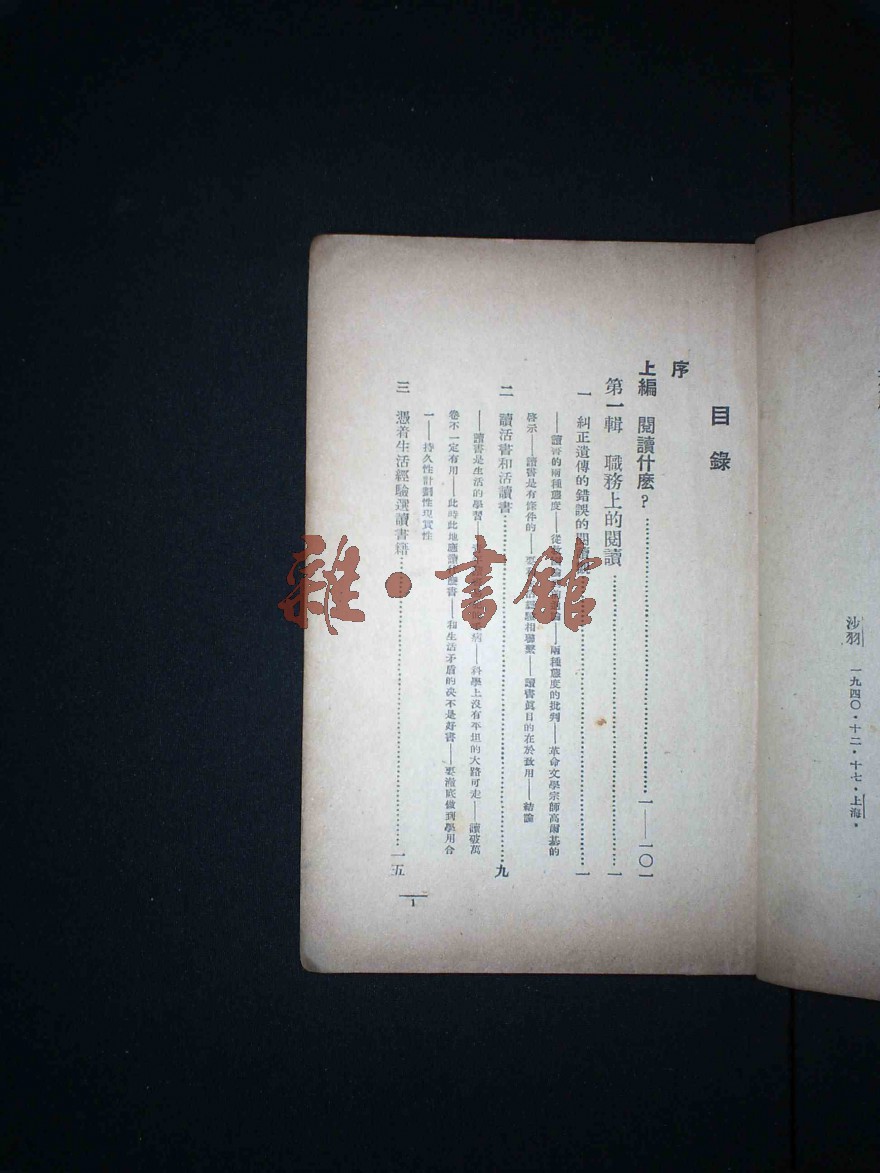 沙羽 一九四〇・十二・十七・上海・
目錄
序
上編 閱讀什麽？……一——一〇一
第一輯 職務上的閱讀……一
一 糾正遺傳的錯誤的……一
——讀書的兩種態度——從……——兩種態度的批判——革命文學宗師高爾基的
啓示——讀書是有條件的——要……經驗相聯繫——讀書眞目的在於致用——結論
二 讀活書和活讀書……九
——讀書是生活的學習——……病——科學上沒有平坦的大路可走——讀破萬
卷不一定有用——此時此地應讀……書——和生活矛盾的决不是好書——要澈底做到學用合
一——持久性計劃性現實性
三 憑着生活經驗選讀書籍……一五
1
雜・書館